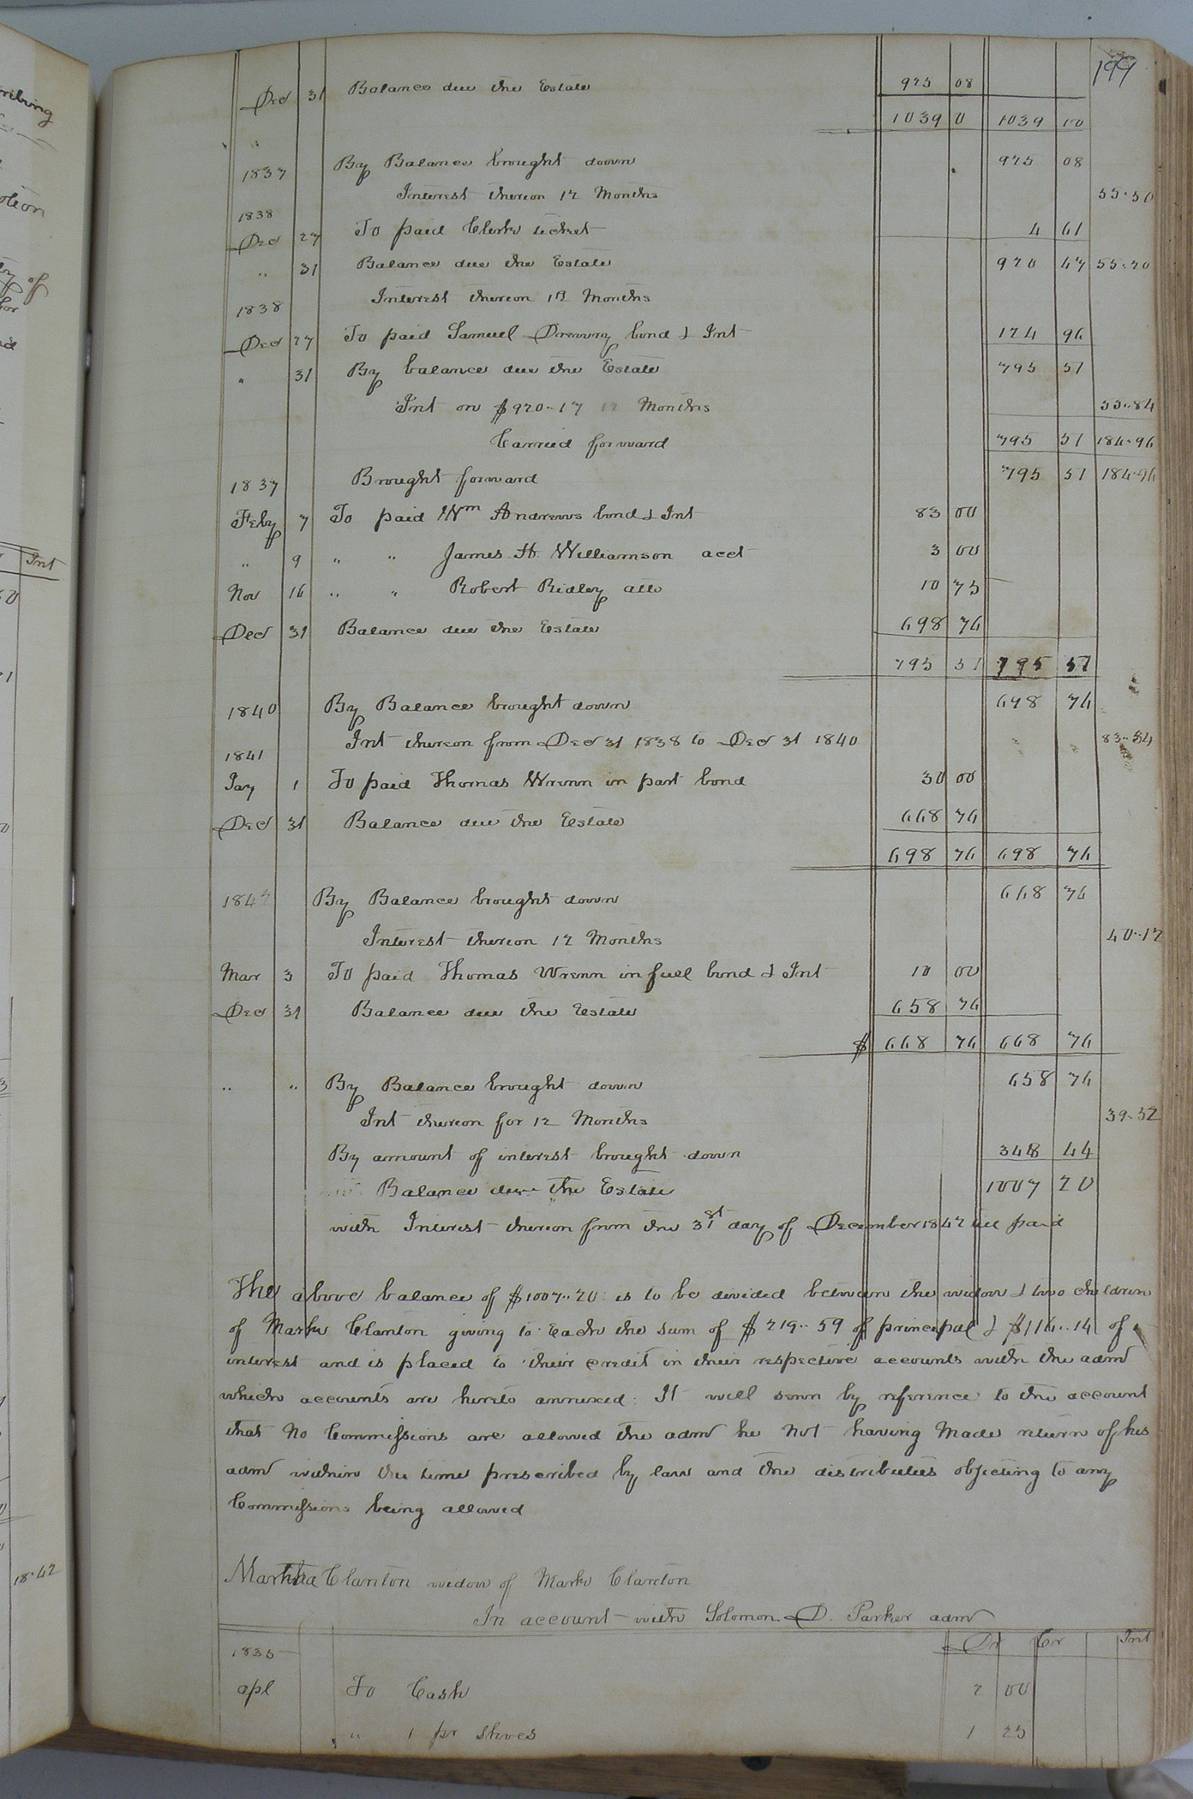 199
Decr 31 Balance due the Estate 925 08
1039 0 1039 10
1837 By Balance brought down 925 08
Interest thereon 12 Months 55.50
1838
Decr 27 To paid Clerks ticket 4 61
" 31 Balance due the Estate 920 47 55.20
1838 Interest thereon 12 Months
Decr 27 To paid Samuel Drewry bond & Int 124 96
" 31 By balance due the Estate 795 51
Int on $920..17 12 Months 55..84
Carried forward 795 51 184.96
1837 Brought forward 795 51 184.96
Feby 7 To paid Wm Andrews bond & Int 83 00
" 9 " " James H Williamson acct 3 00
Nov 16 " " Robert Ridley allo 10 75
Decr 31 Balance due the Estate 698 76
795 51 795 57
1840 By Balance brought down 698 76
1841 Int thereon from Decr 31 1838 to Decr 31 1840 83..84
Jay 1 To paid Thomas Wrenn in part bond 30 00
Decr 31 Balance due the Estate 668 76
698 76 698 76
184 By Balance brought down 668 76
Interest thereon 12 Months 40..12
Mar 3 To paid Thomas Wrenn in full bond & Int 10 00
Decr 31 Balance due the Estate 658 76
$ 668 76 668 76
" " By Balance brought down 658 76
Int thereon for 12 Months 39.52
By amount of interest brought down 348 44
Balance due the Estate 1007 20
with Interest thereon from the 31st day of December 1842 till paid
The above balance of $1007..20 is to be divided between the widow & two children
of Mark Clanton giving to Each the sum of $219..59 of principal & $116..14 of
interest and is placed to their credit in their respective accounts with the admr
which accounts are hereto annexed: It will seen by reference to the account
that No Commissions are allowed the admr he not having Made return of his
admr within the time prescribed by law and the distributees objecting to any
Commissions being allowed
Martha Clanton widow of Mark Clanton
In account with Solomon D. Parker admr
Dr Cr Int
1835
apl To Cash 2 00
" 1 pr Shoes 1 25
Int
18.42